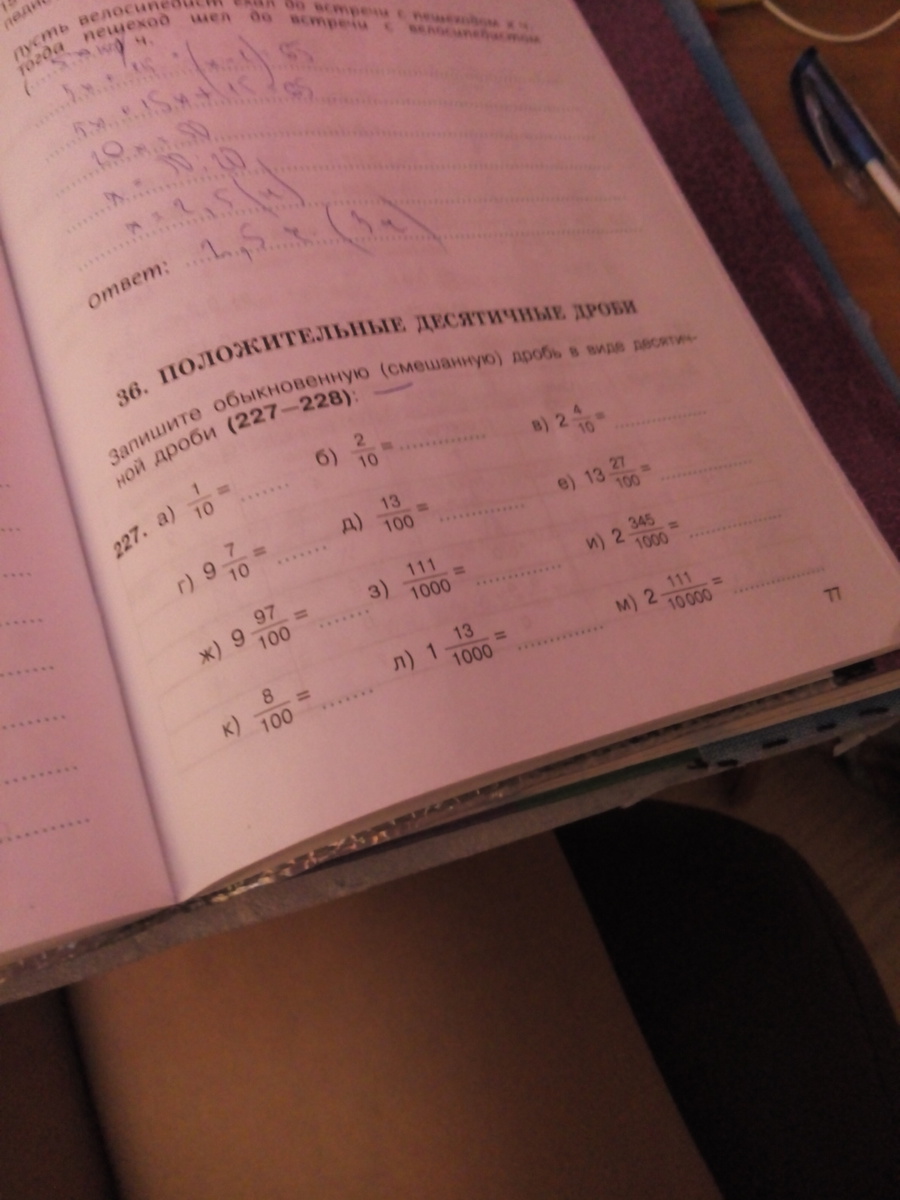 пусть велосипедист ехал до встречи с пешеходом x ч,
тогда пешеход шел до встречи с велосипедистом
ч.
20x = 50
x = 50:20
x = 2,5 (ч)
ответ: 2,5
36. ПОЛОЖИТЕЛЬНЫЕ ДЕСЯТИЧНЫЕ ДРОБИ
Запишите обыкновенную (смешанную) дробь в виде десятич-
ной дроби (227—228):
227. а) 1/10 = ........ б) 2/10 = ............... в) 2 4/10 = ...............
г) 9 7/10 = ........ д) 13/100 = ............... е) 13 27/100 = ...............
ж) 9 97/100 = ........ з) 111/1000 = ............... и) 2 345/1000 = ...............
к) 8/100 = ........ л) 1 13/1000 = ............... м) 2 111/10000 = ...............
77